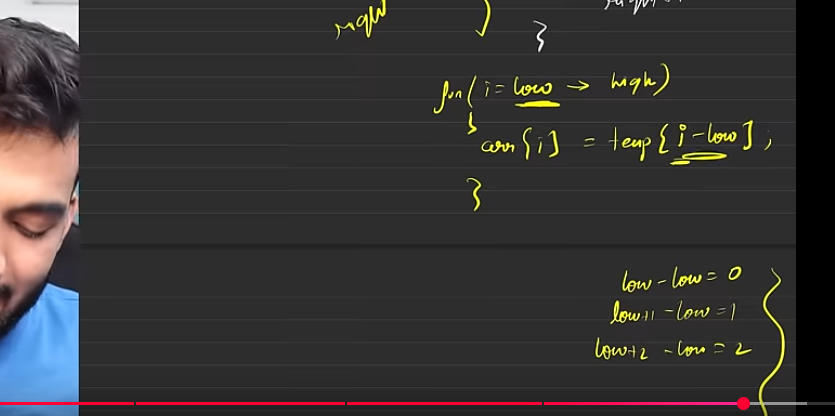 right }
}
for( i = low → high)
{
arr[i] = temp[i-low];
}
low - low = 0
low+1 - low = 1
low+2 - low = 2